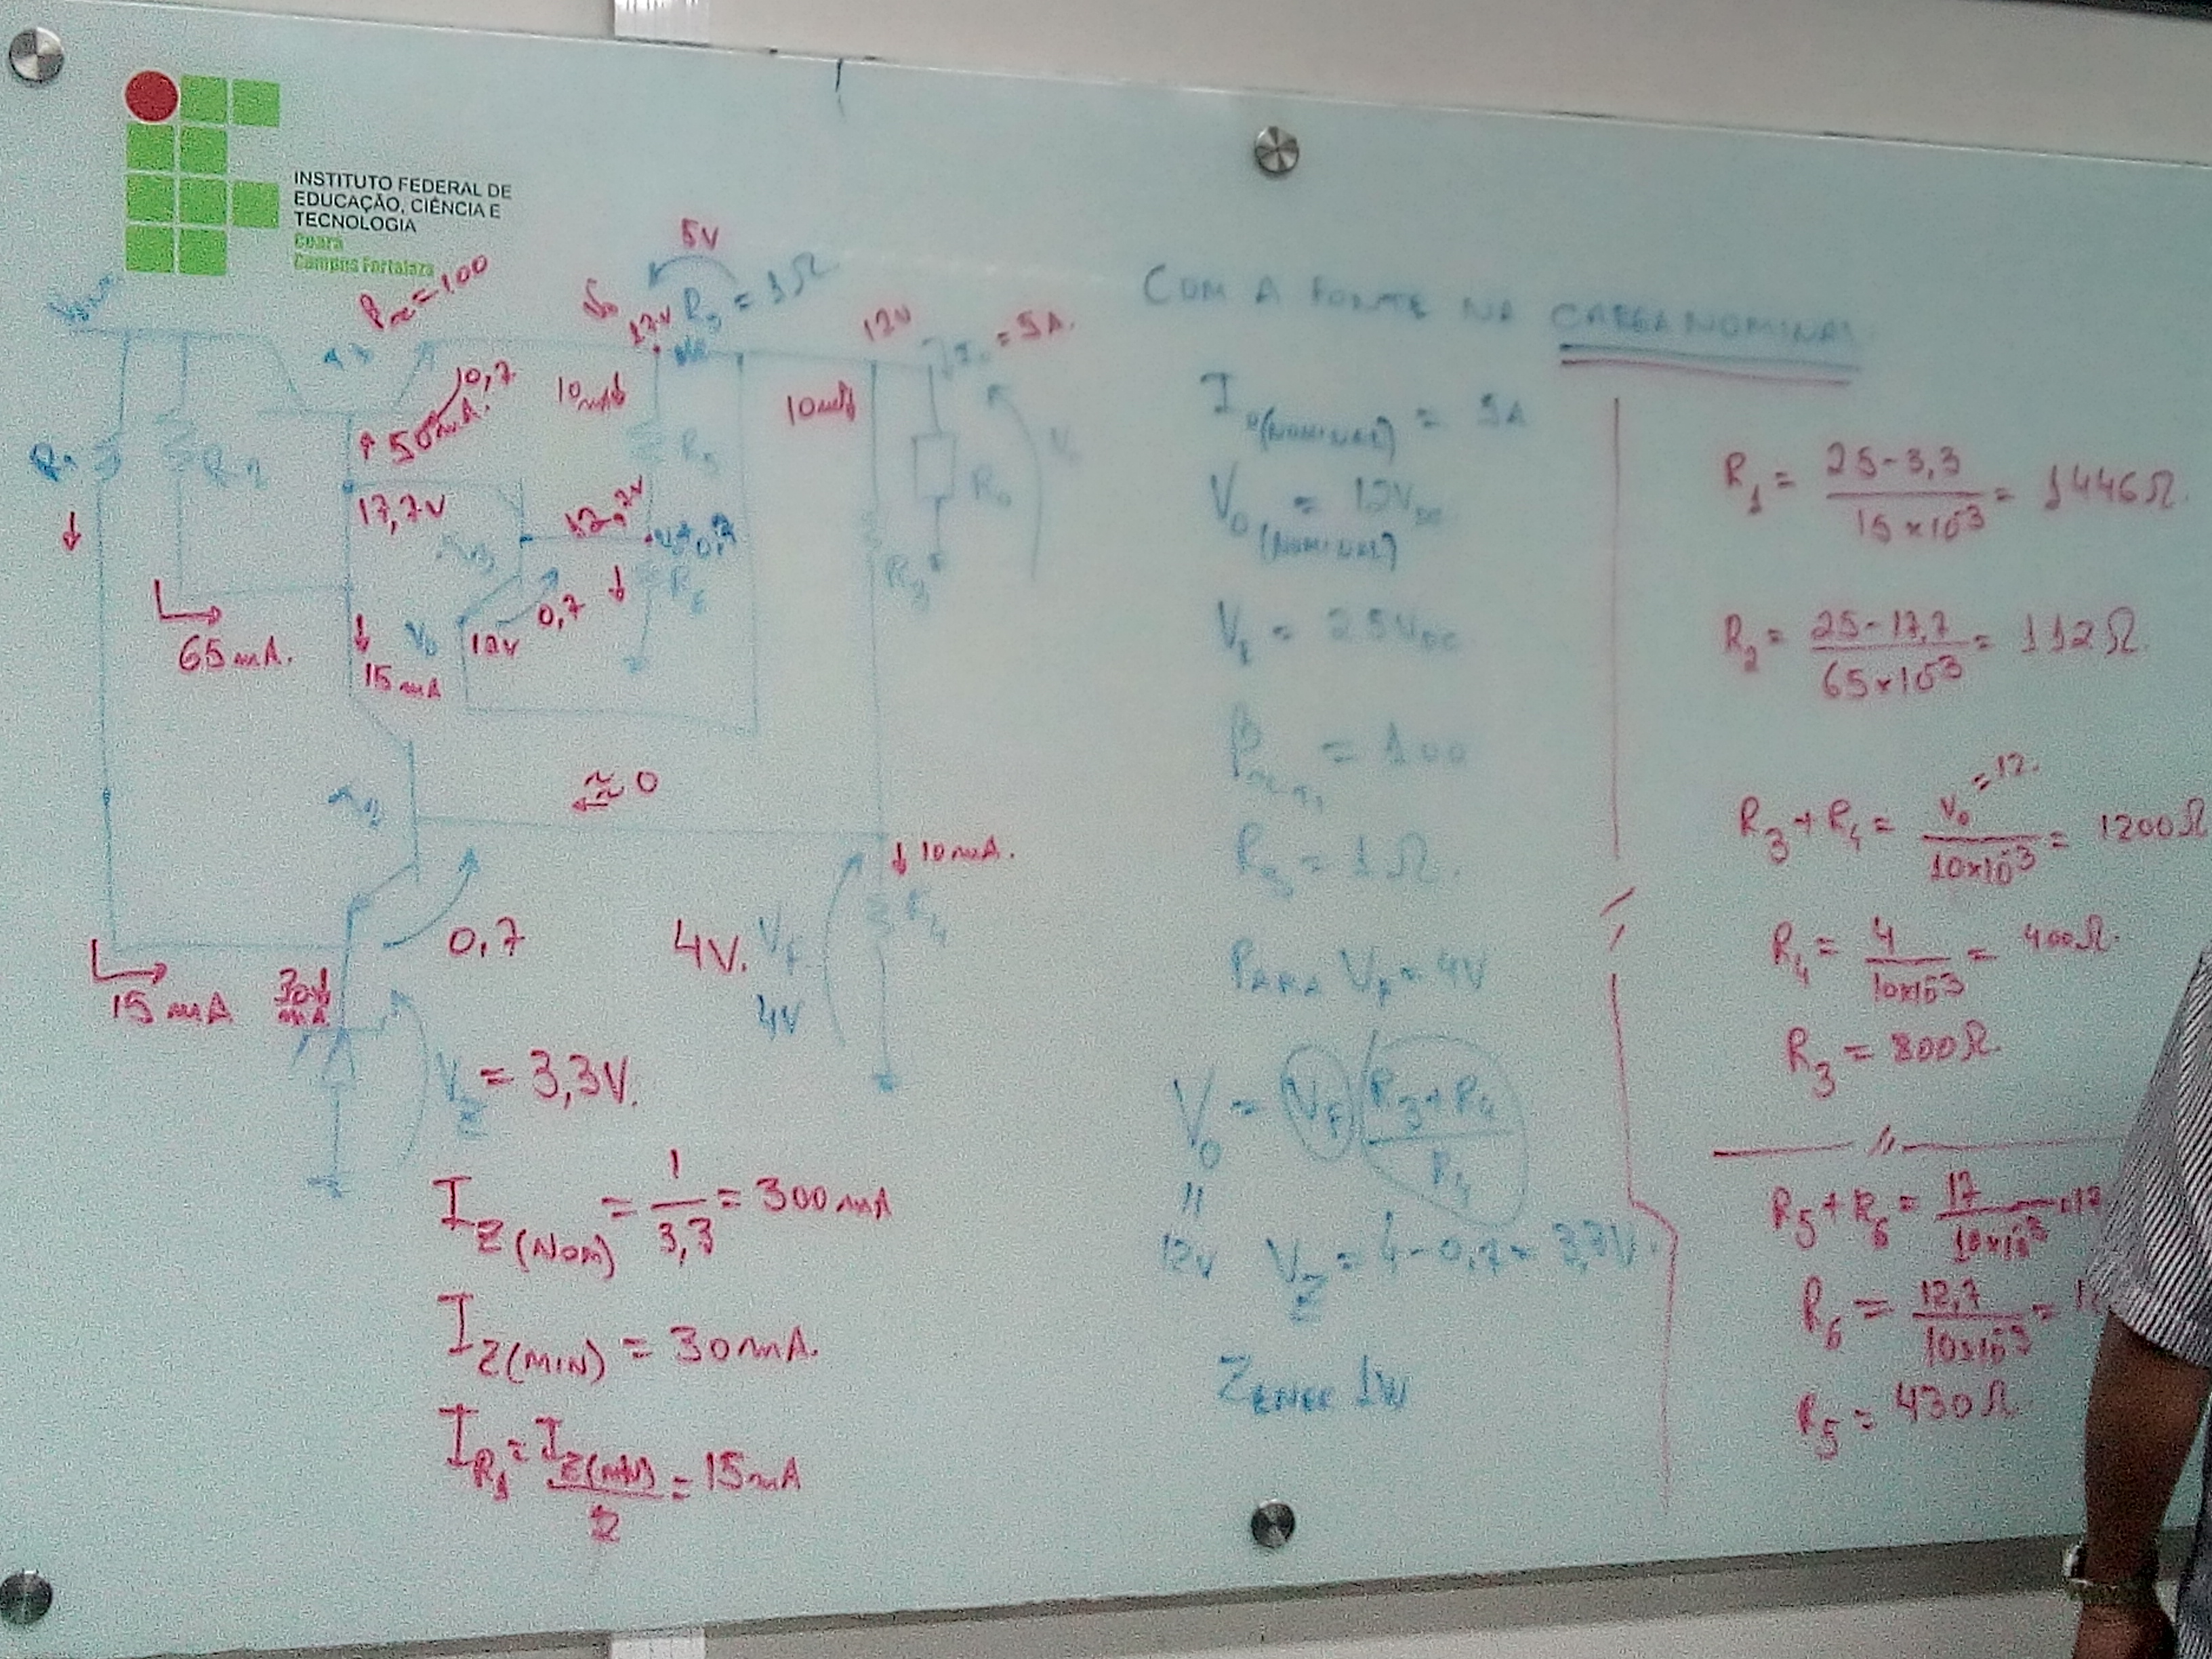 INSTITUTO FEDERAL DE
EDUCAÇÃO, CIÊNCIA E
TECNOLOGIA
Ceará
Campus Fortaleza
= 100
5V
17V
= 1Ω
12V
= 5A.
0,7
50mA.
10mA
10mA
R1
R2
R5
17,7V
12,7V
R6
R3
R0
0,7
12V
65mA.
15mA
≈ 0
10mA.
R4
0,7
4V. VF
4V
15mA
30
mA
VZ = 3,3V.
IZ(NOM) = 1/3,3 = 300mA
IZ(MIN) = 30mA.
IR1 = IZ(MIN)/2 = 15mA
COM A FONTE NA CARGA NOMINAL
I0(NOMINAL) = 5A
V0(NOMINAL) = 12VDC
= 25VDC
β = 100
= 1Ω.
PARA VF = 4V
V0 = VF (R3+R4/R4)
"
12V
VZ = 4-0,7 = 3,3V.
ZENER 1W
R1 = 25-3,3/15×10-3 = 1446Ω.
R2 = 25-17,7/65×10-3 = 112Ω.
R3+R4 = V0 = 12./10×10-3 = 1200Ω
R4 = 4/10×10-3 = 400Ω.
R3 = 800Ω.
R5+R6 = 17/10×10-3
R6 = 12,7/10×10-3 =
R5 = 430Ω.